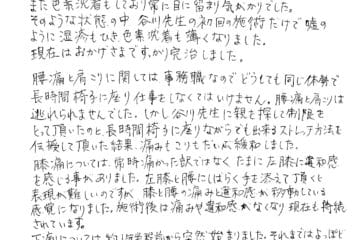 また色素沈着もしており常に目に留まり気がかりでした。
そのような状態の中 谷川先生の初回の施術だけで嘘の
ように湿疹もひき色素沈着も薄くなりました。
現在はおかげさまですっかり完治しました。
腰痛と肩こりに関しては 事務職なのでどうしても同じ体勢で
長時間椅子に座り仕事をしなくてはいけません。腰痛と肩コリは
逃れられませんでした。しかし谷川先生に親と探して制限を
とって頂いたのと長時間椅子に座りながらでも出来るストレッチ方法を
伝授して頂いた結果、痛みもこりもだいぶ緩和しました。
膝痛については、常時痛かった訳ではなく たまに左膝に違和感
を感じる事がありました。左膝と腰にしばらく手を添えて頂くと
表現が難しいのですが、膝と腰の痛みと違和感が移動している
感覚になりました。施術後は痛みや違和感がなくなり 現在も持続
されています。